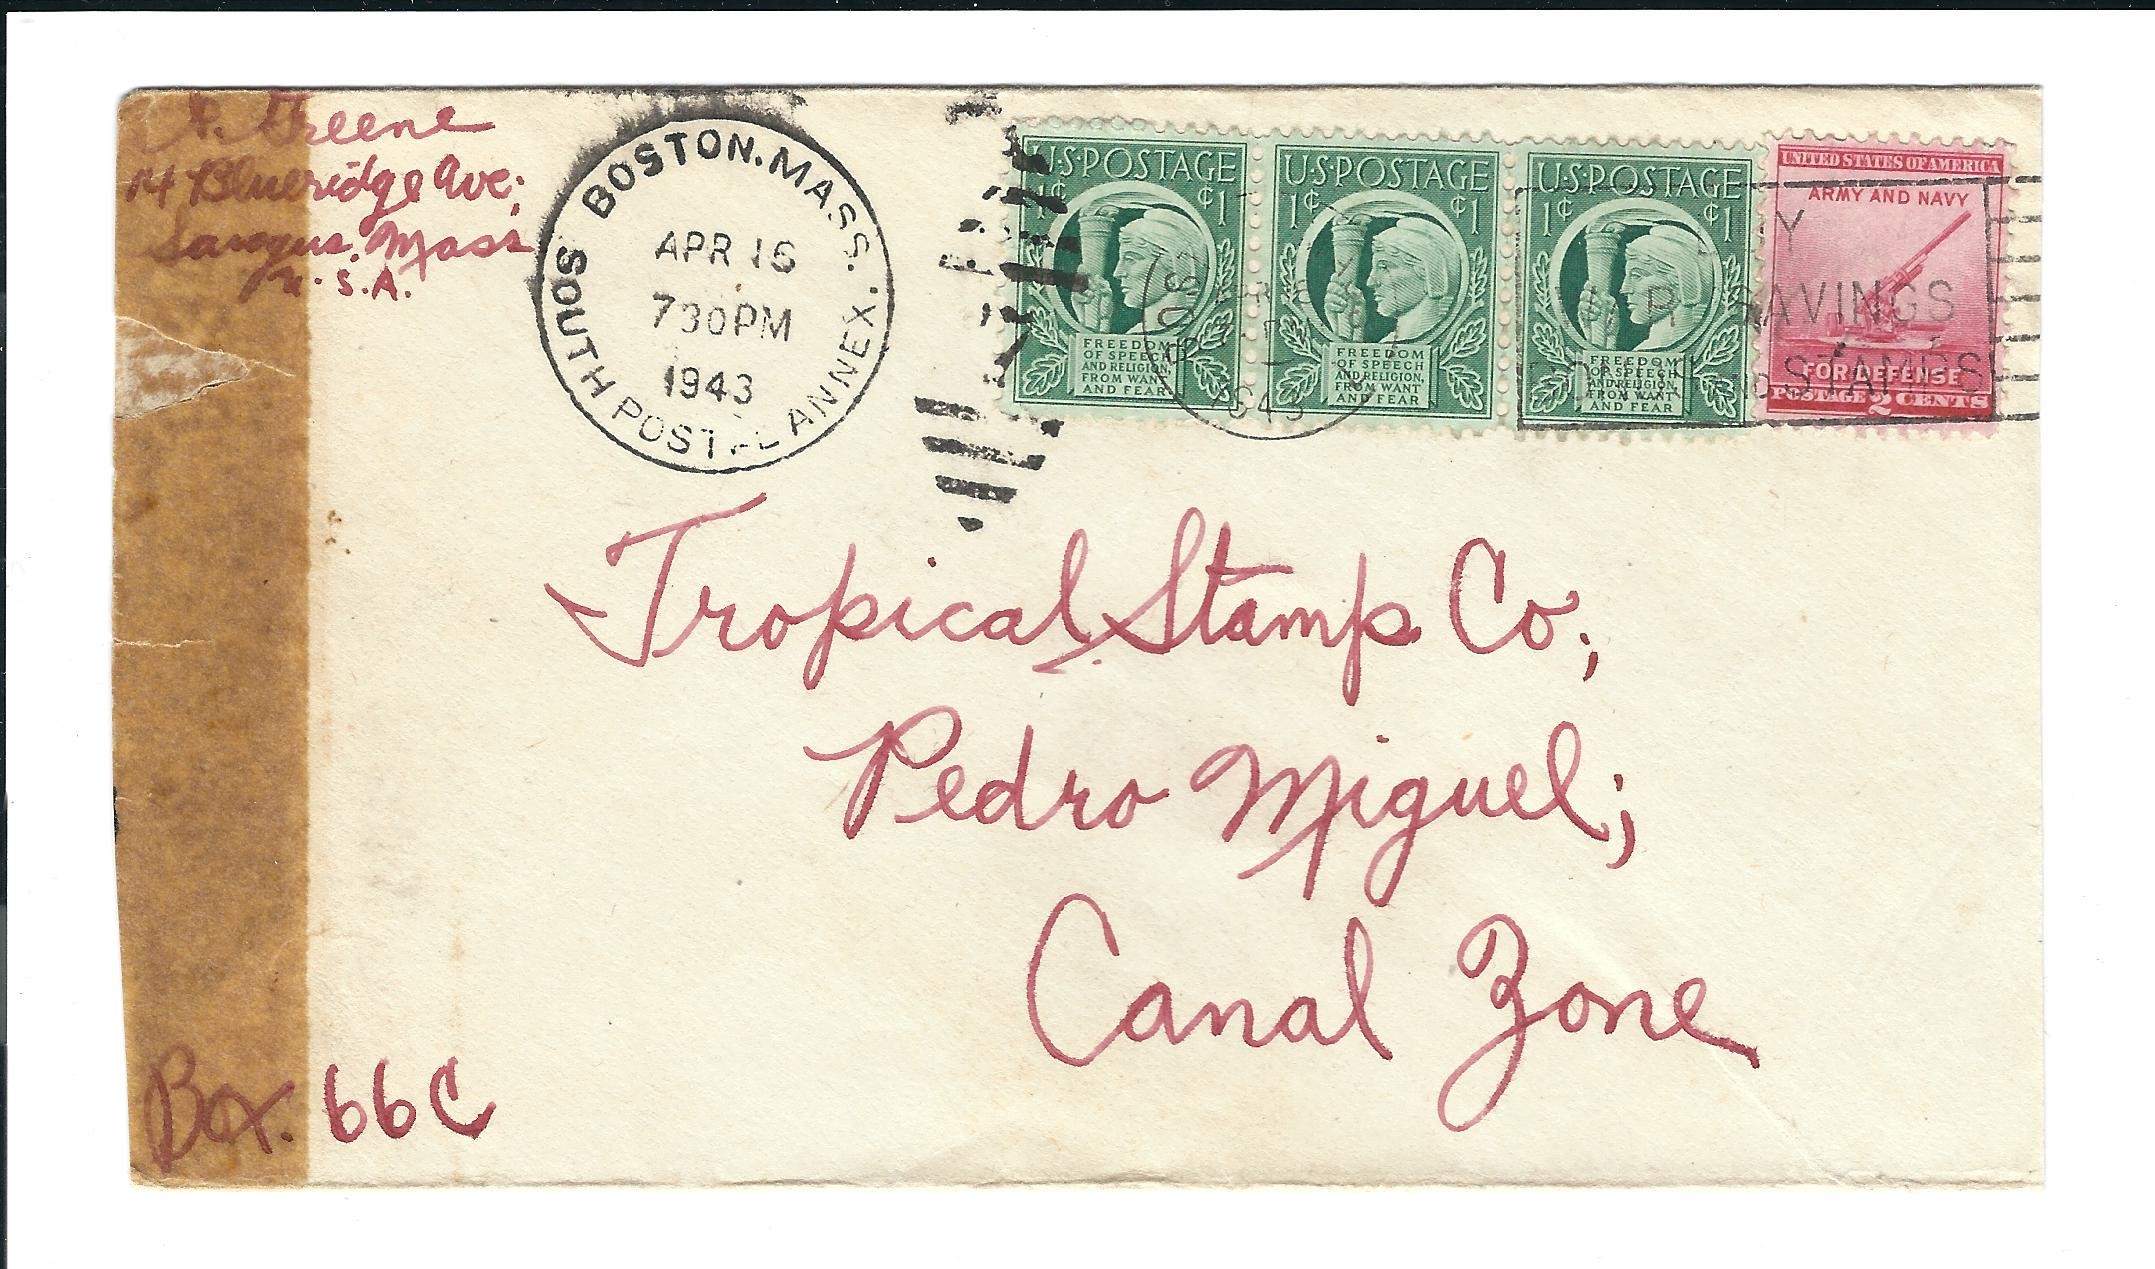 Greene
14 Blueridge Ave;
Saugus, Mass
U.S.A.
BOSTON, MASS.
SOUTH POSTAL ANNEX.
APR 16
730PM
1943
U·S·POSTAGE
1¢ ¢1
FREEDOM
OF SPEECH
AND RELIGION,
FROM WANT
AND FEAR
U·S·POSTAGE
1¢ ¢1
FREEDOM
OF SPEECH
AND RELIGION,
FROM WANT
AND FEAR
U·S·POSTAGE
1¢ ¢1
FREEDOM
OF SPEECH
AND RELIGION,
FROM WANT
AND FEAR
UNITED STATES OF AMERICA
ARMY AND NAVY
FOR DEFENSE
POSTAGE 2 CENTS
SAVINGS
STAMPS
1943
Tropical Stamp Co,
Pedro Miguel;
Canal Zone
Box. 66C